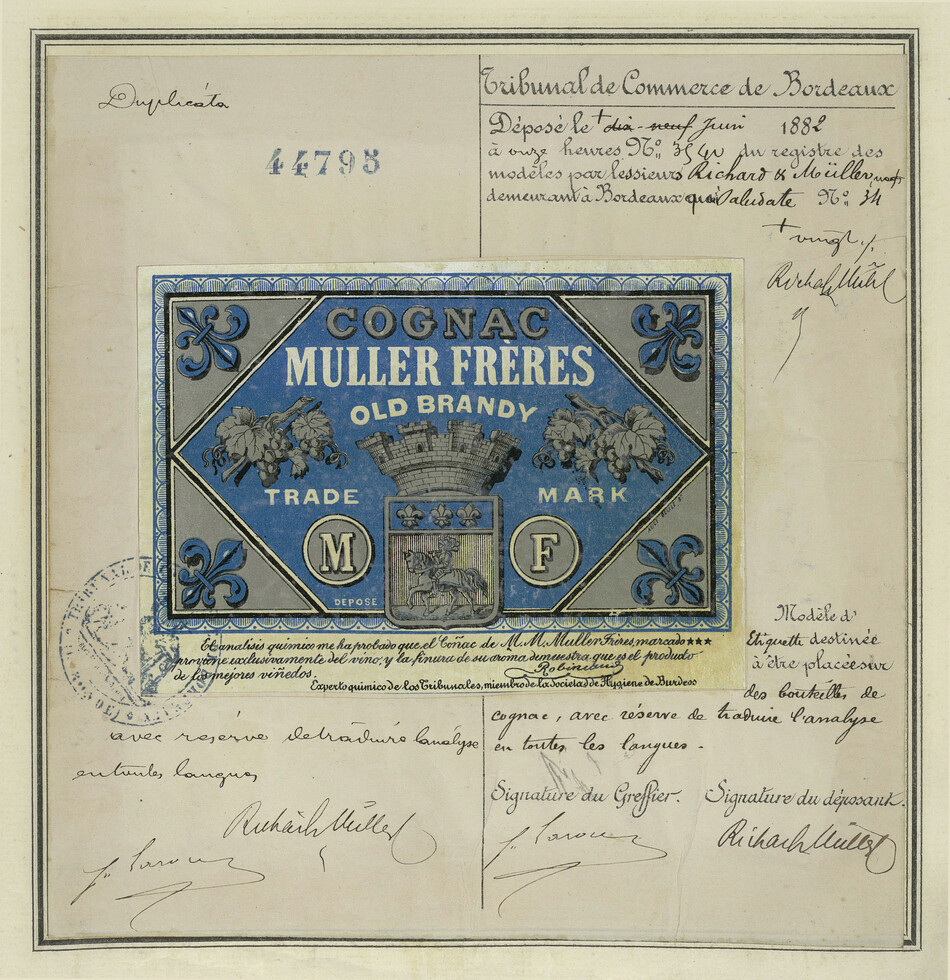 Duplicata
44795
Tribunal de Commerce de Bordeaux
Déposé le + dix-neuf Juin 1882
à onze heures No. 3540 du registre des
modèles par les sieurs Richard & Müller
demeurant à Bordeaux quai Paludate No. 34
+ vingt
Richard Müller
COGNAC
MULLER FRÈRES
OLD BRANDY
TRADE MARK
M F
DÉPOSÉ
El analisis quimico me ha probado que el Coñac de M.M. Muller Frères, marcado ★★★
proviene exclusivamente del vino, y la finura de su aroma demuestra que es el produdo
de los mejores viñedos.
Robineaud
Experto quimico de los Tribunales, miembro de la Societad de Hygiene de Burdeos
Modèle d'
Etiquette destinée
à être placée sur
des bouteilles de
cognac, avec réserve de traduire l'analyse
en toutes les langues.
avec réserve de traduire l'analyse
en toutes langues
Richard Müller
Signature du Greffier. Signature du déposant.
Richard Müller